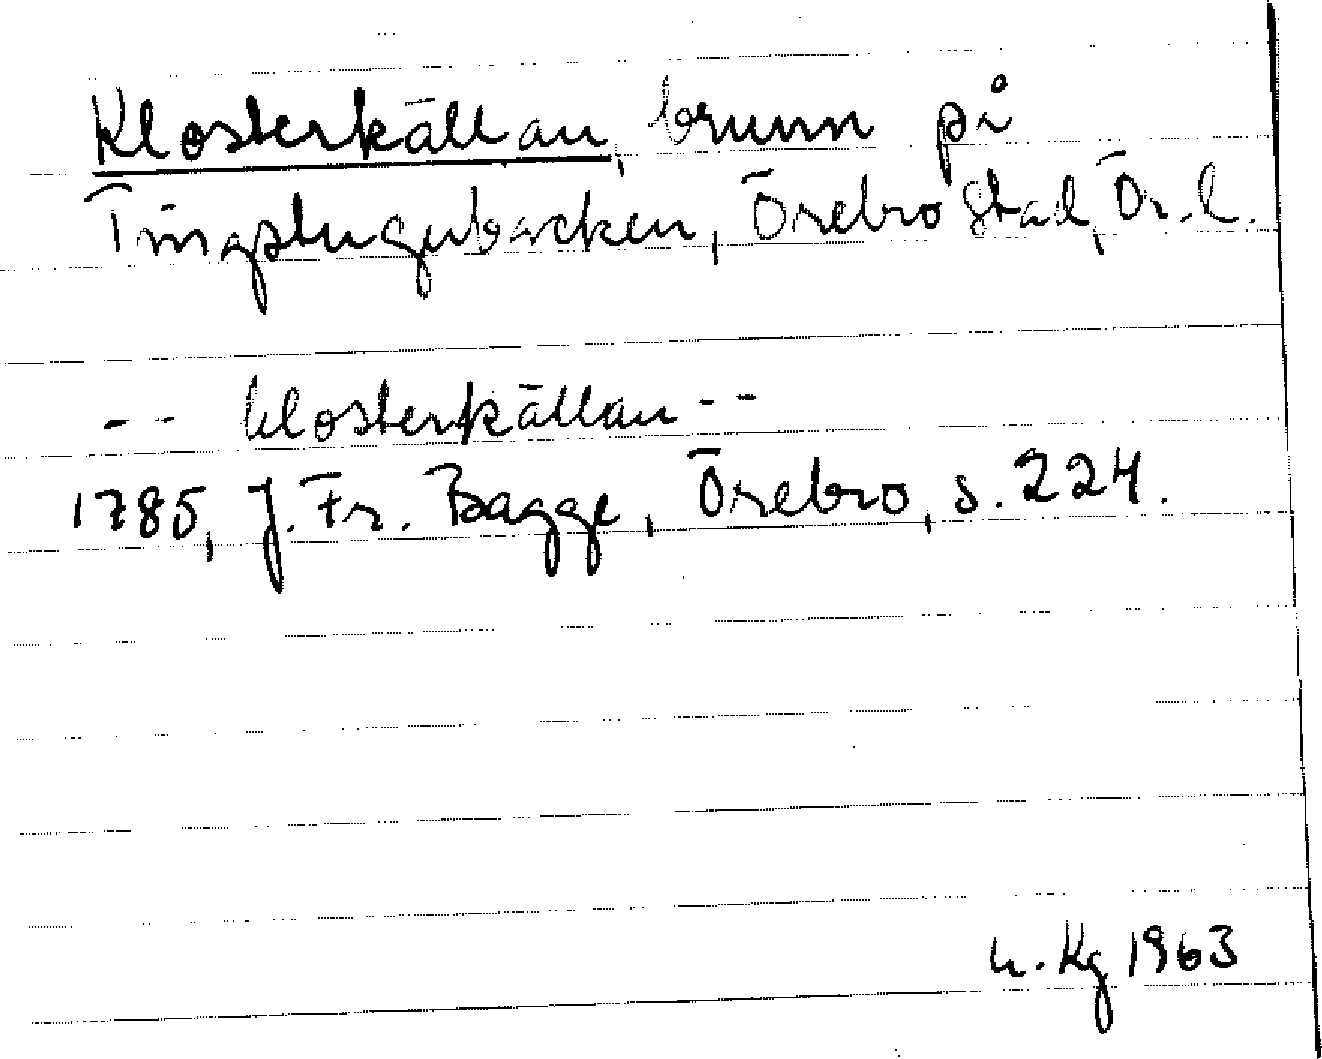 Klosterkällan, brunn på
Tingstugubacken, Örebro stad, Ör. l.
-- klosterkällan --
1785, J. Fr. Bagge, Örebro, s. 224.
h. Kg 1963